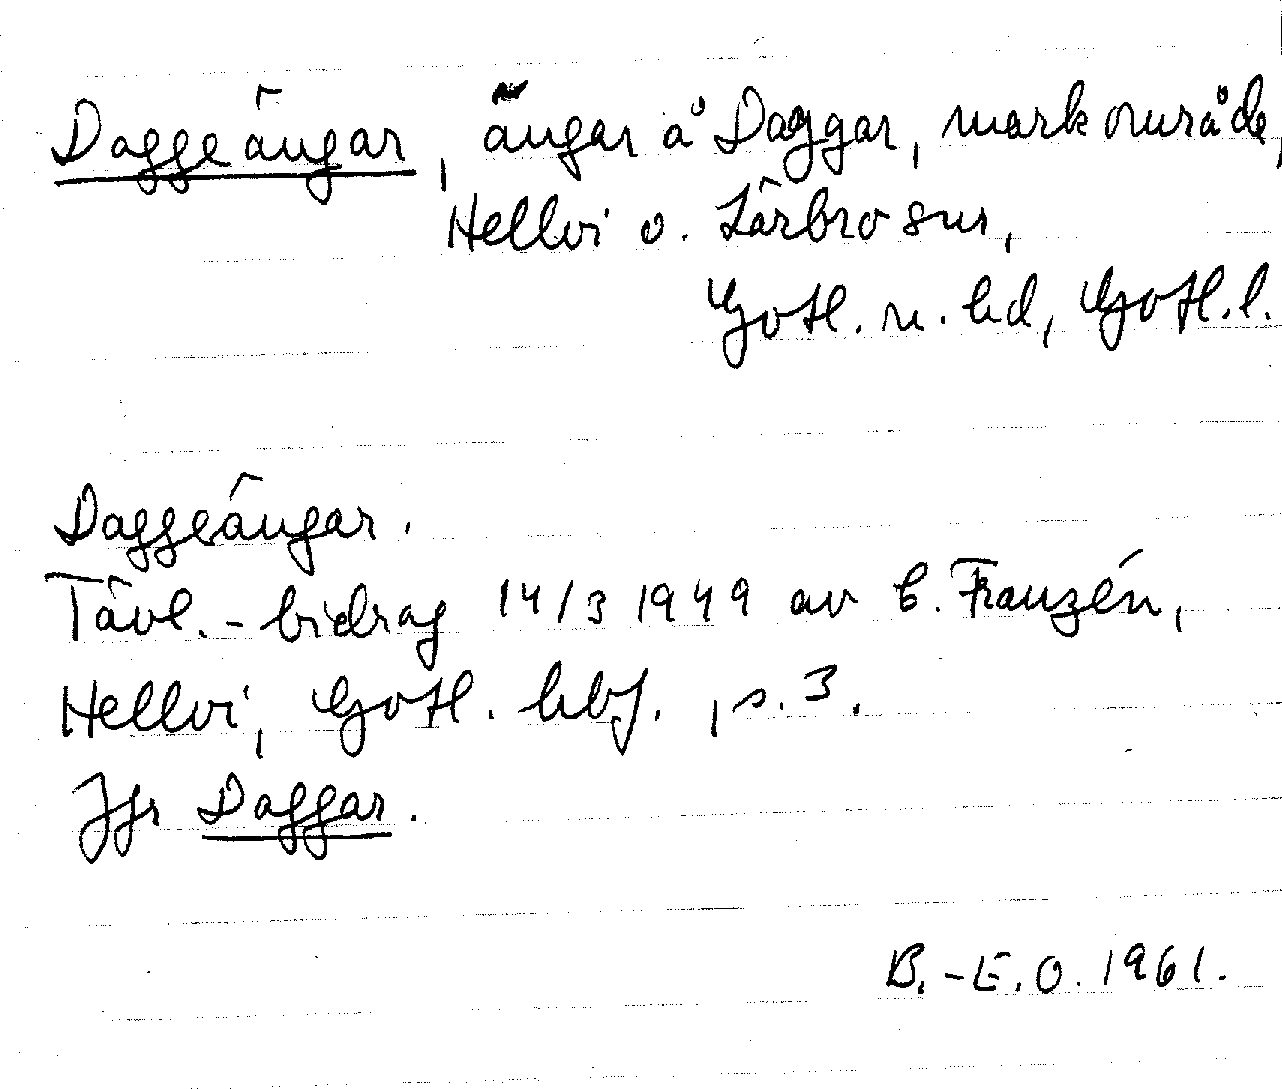 Daggeängar, ängar å Daggar, markområde,
Hellvi o. Lärbro snr,
Gotl. n. hd, Gotl. l.
Daggeängar.
Tävl.-bidrag 14/3 1949 av B. Franzén,
Hellvi, Gotl. hbf., s. 3.
Jfr Daggar.
B.-E. O. 1961.